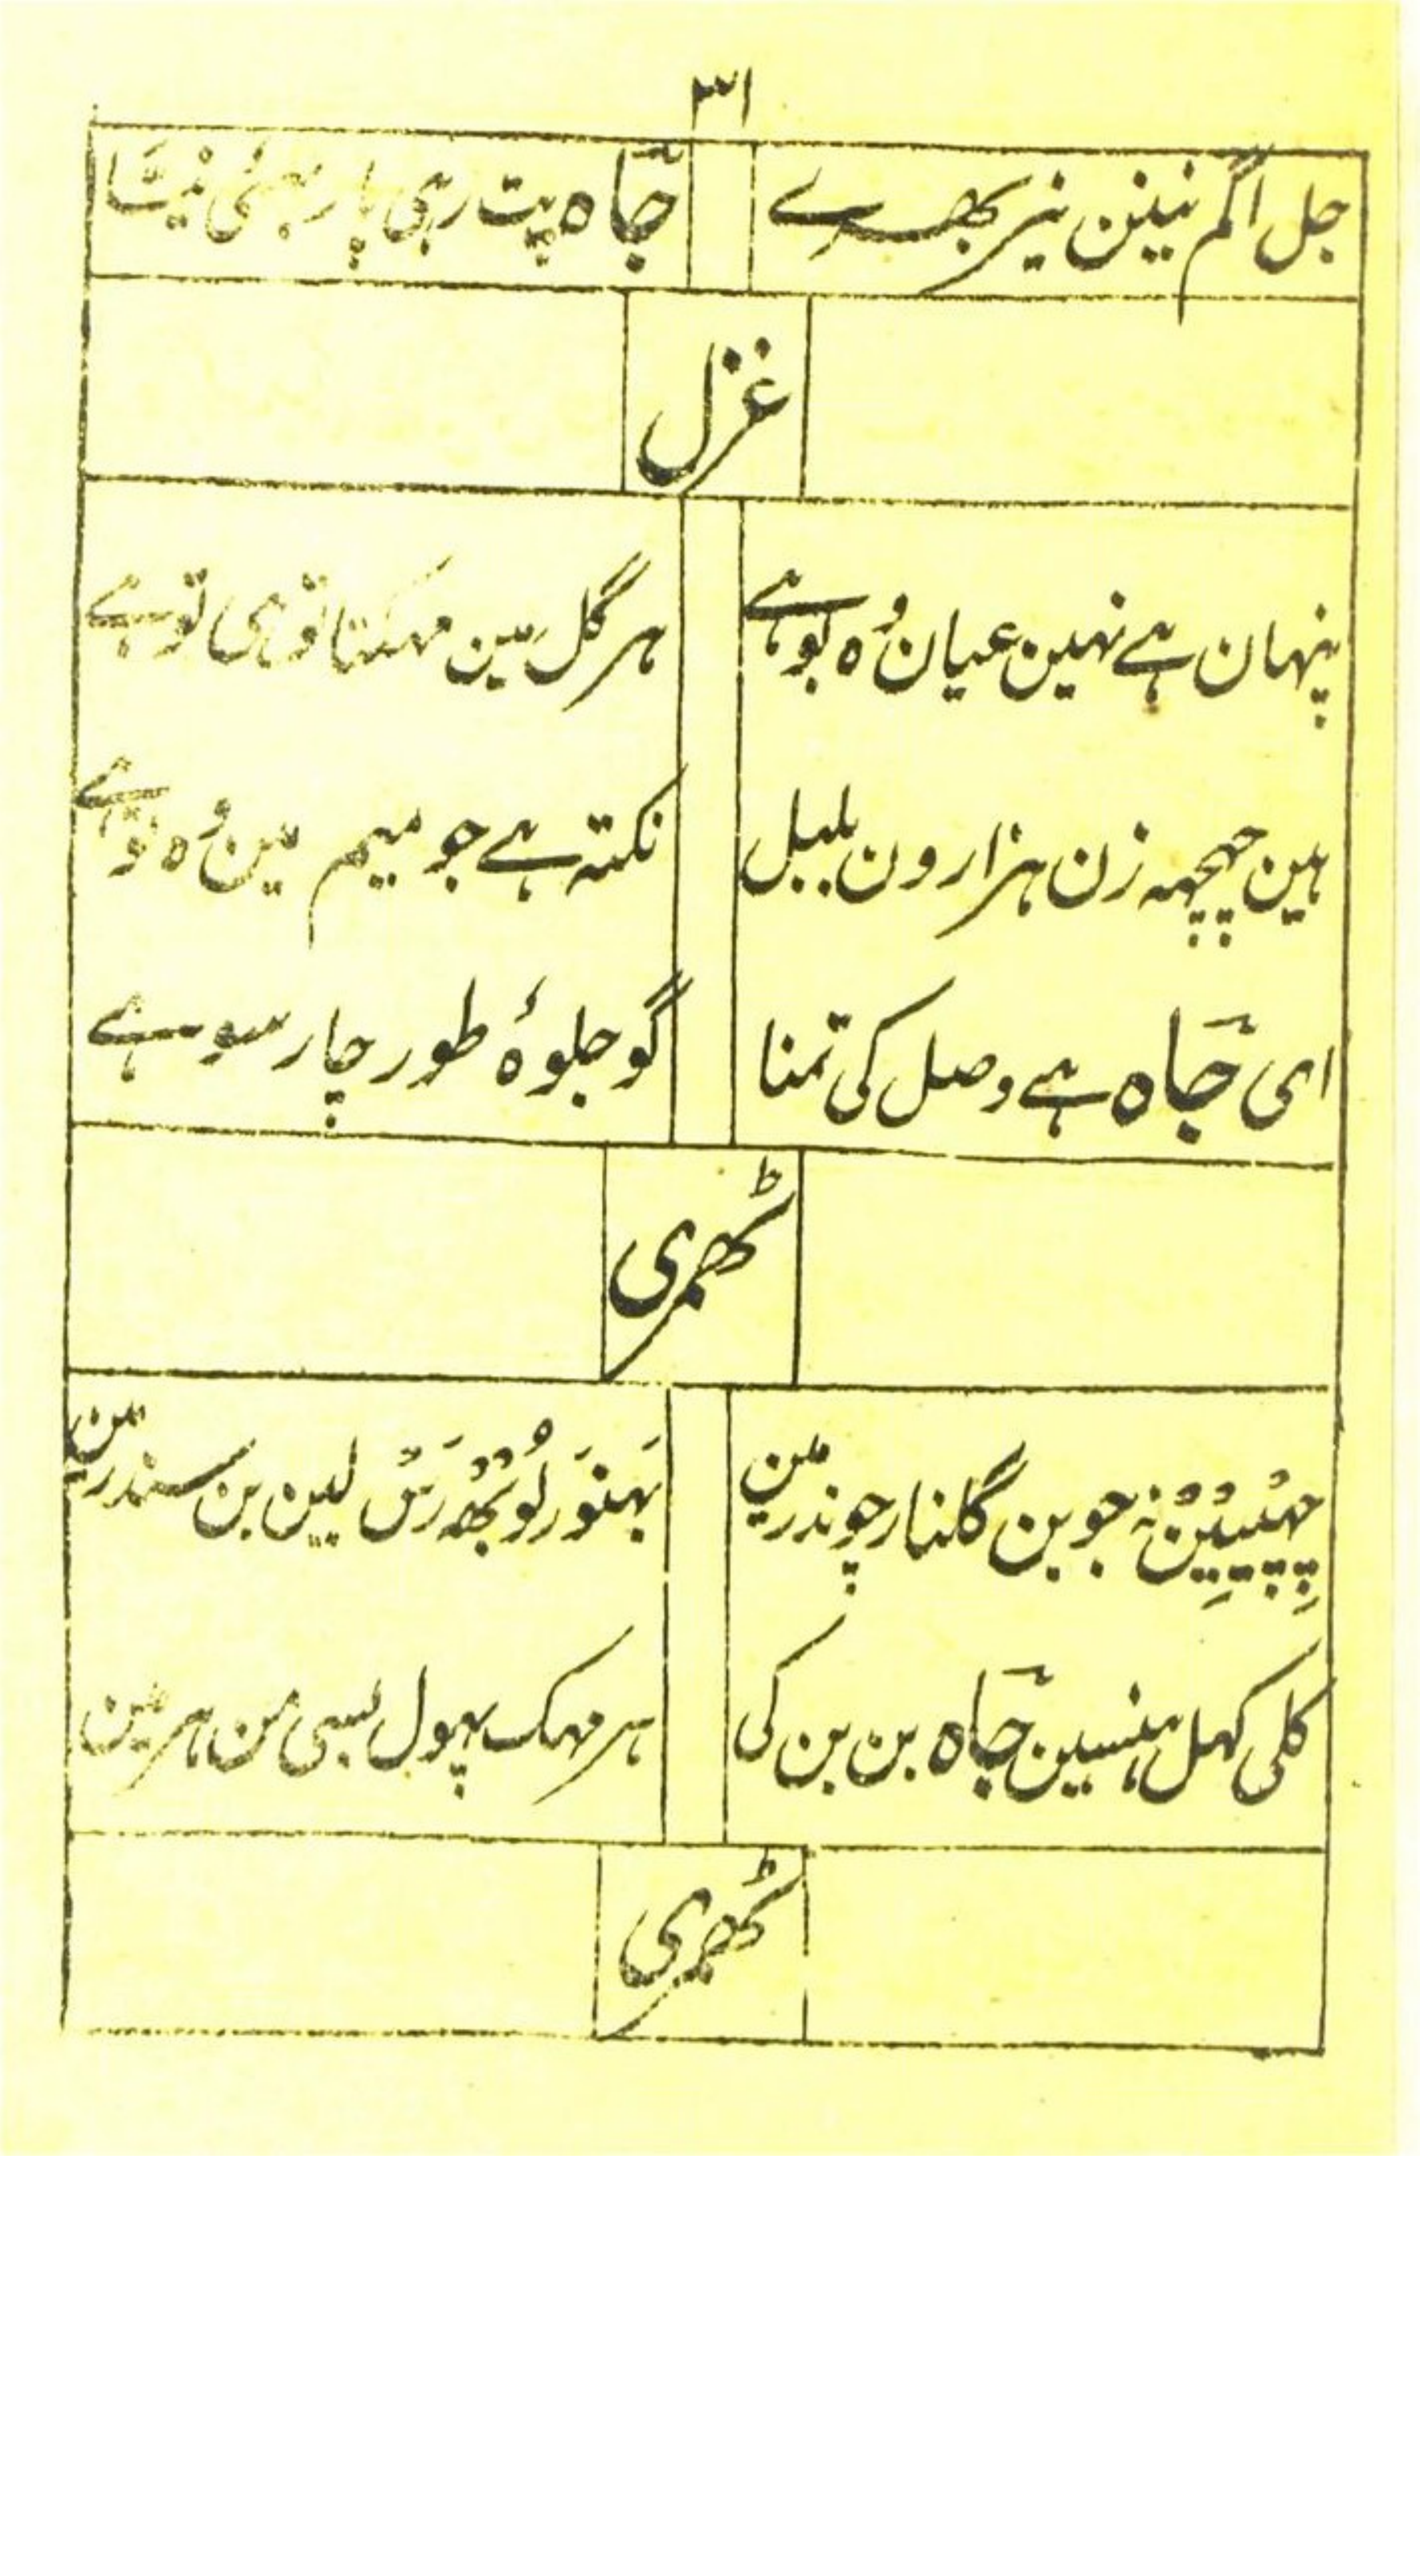 ۳۱
جل اگم نینن نیر بھرے
جاہ پت رہی پار بھئی نیّا
غزل
پنہان ہے نہین عیان وُہ بو ہے
ہر گل مین مہکتا تو ہی تو ہے
ہین چہچہہ زن ہزارون بلبل
نکتہ ہے جو میم مین وُہ تو ہے
ای جاہ ہے وصل کی تمنا
گو جلوۂ طور چار سو ہے
ٹھمری
نہ جوبن گلنار چوندر مین
بَہنوَر لُوبُھ رَسْ لین بن سندر مین
کلی کہل ہنسین جاہ بن بن کی
ہر مہک پہول بسی من ہر مین
ٹھمری